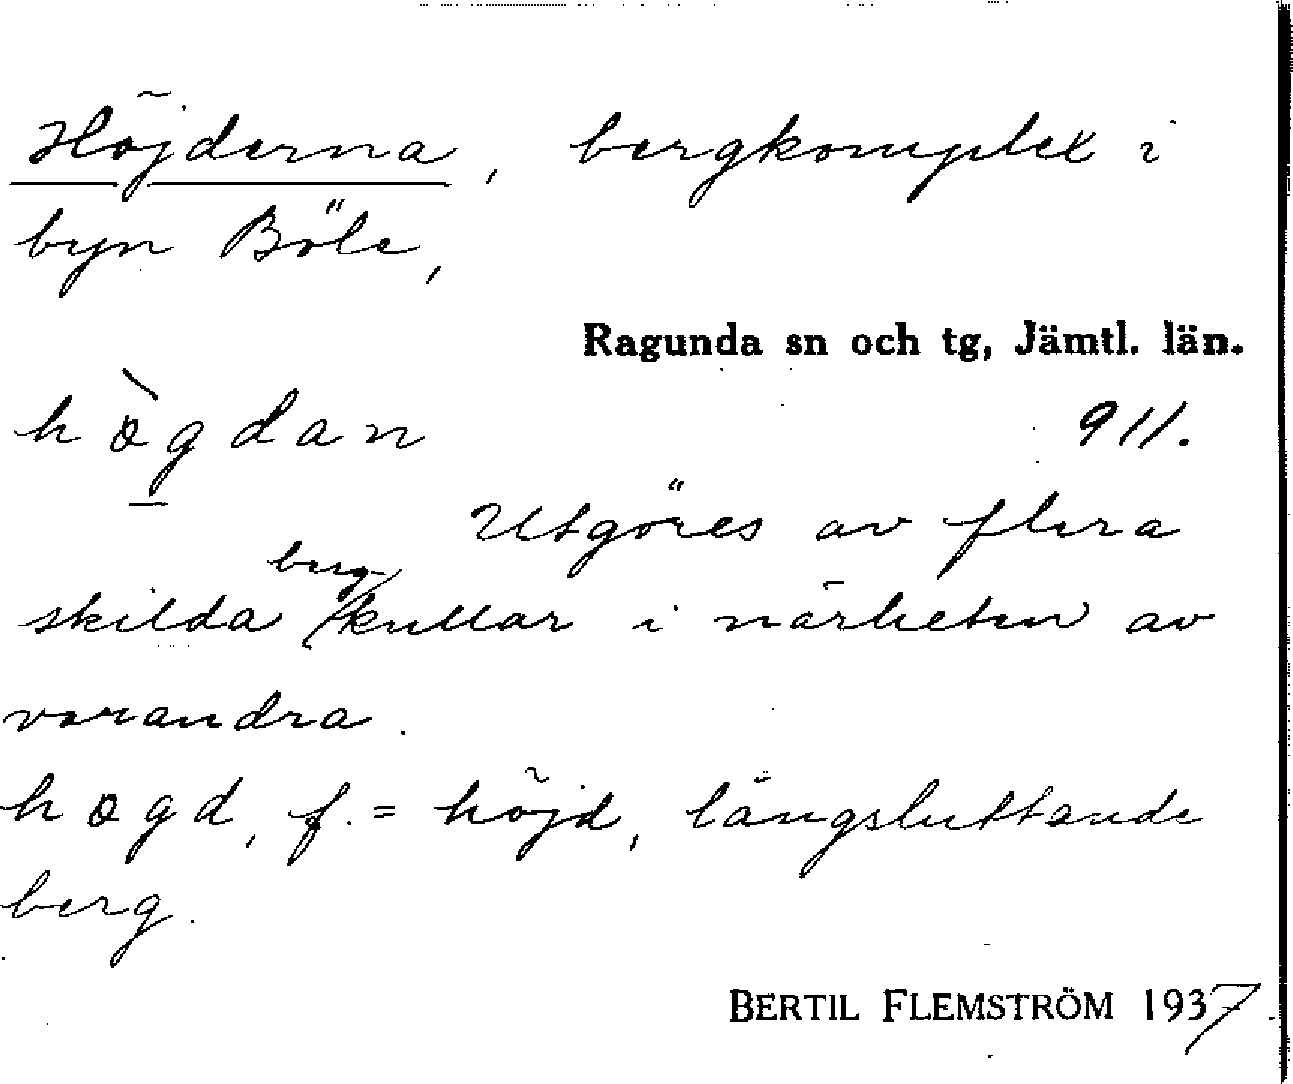 Höjderna, bergkomplex i
byn Böle,
Ragunda sn och tg, Jämtl. län.
hògdan 911.
Utgöres av flera
skilda bergkullar i närheten av
varandra.
hogd, f. = höjd, långsluttande
berg.
BERTIL FLEMSTRÖM 1937